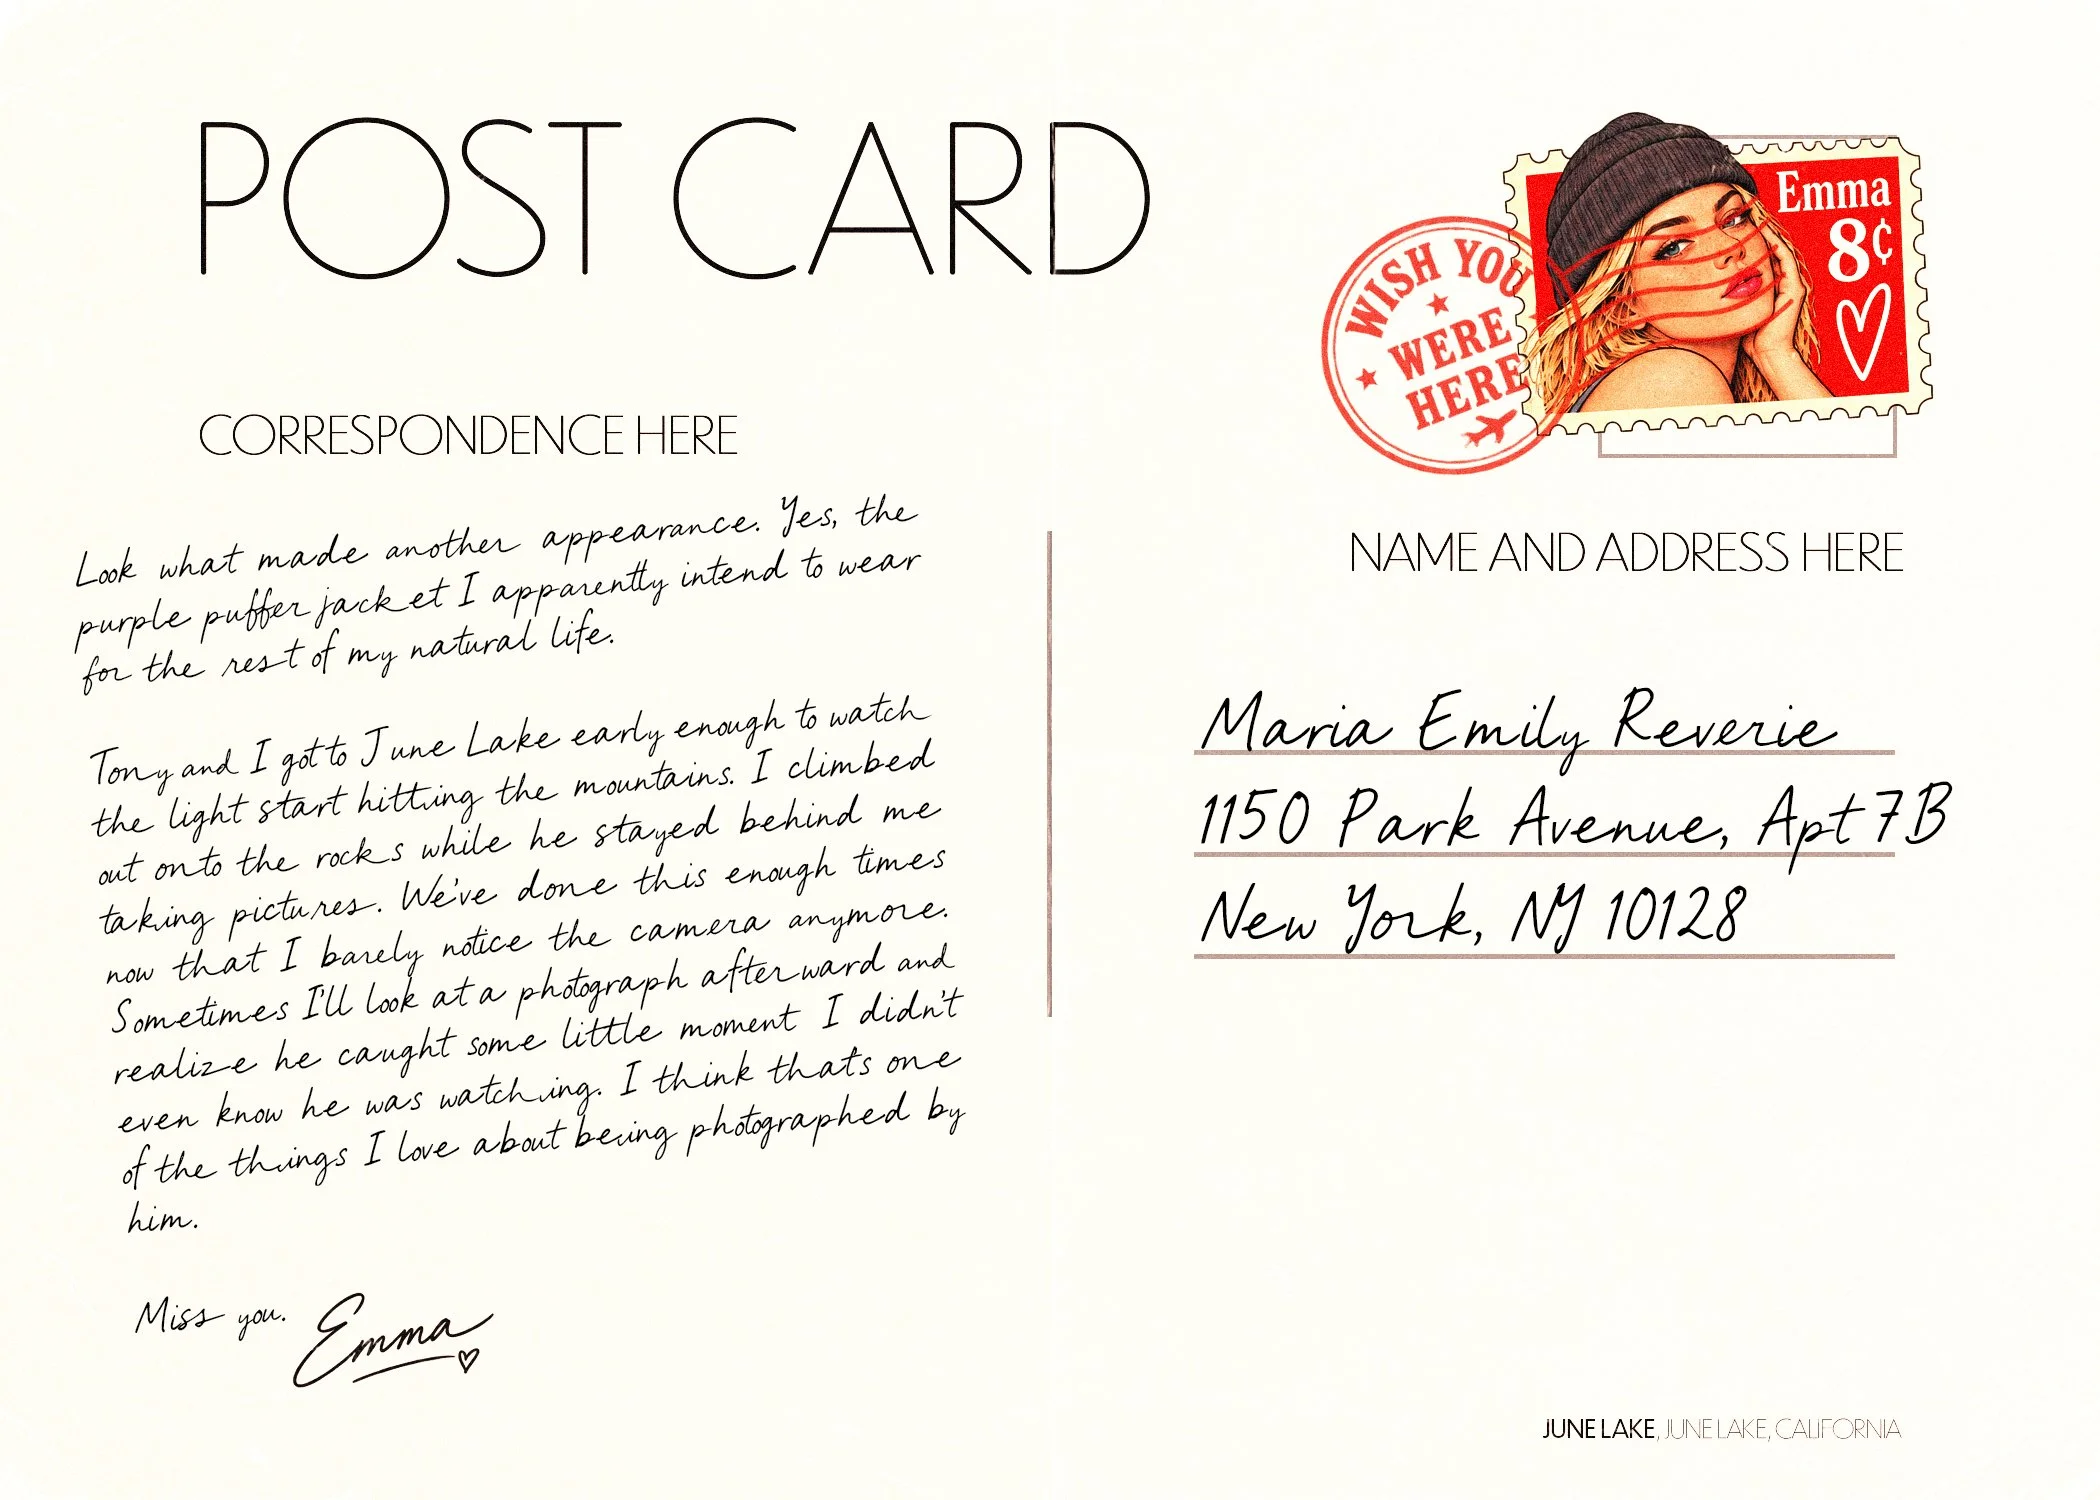 POST CARD
CORRESPONDENCE HERE
Look what made another appearance. Yes, the
purple puffer jacket I apparently intend to wear
for the rest of my natural life.
Tony and I got to June Lake early enough to watch
the light start hitting the mountains. I climbed
out onto the rocks while he stayed behind me
taking pictures. We've done this enough times
now that I barely notice the camera anymore.
Sometimes I'll look at a photograph afterward and
realize he caught some little moment I didn't
even know he was watching. I think that's one
of the things I love about being photographed by
him.
Miss you.
Emma
WISH YOU
WERE
HERE
Emma
8¢
NAME AND ADDRESS HERE
Maria Emily Reverie
1150 Park Avenue, Apt 7B
New York, NY 10128
JUNE LAKE, JUNE LAKE, CALIFORNIA